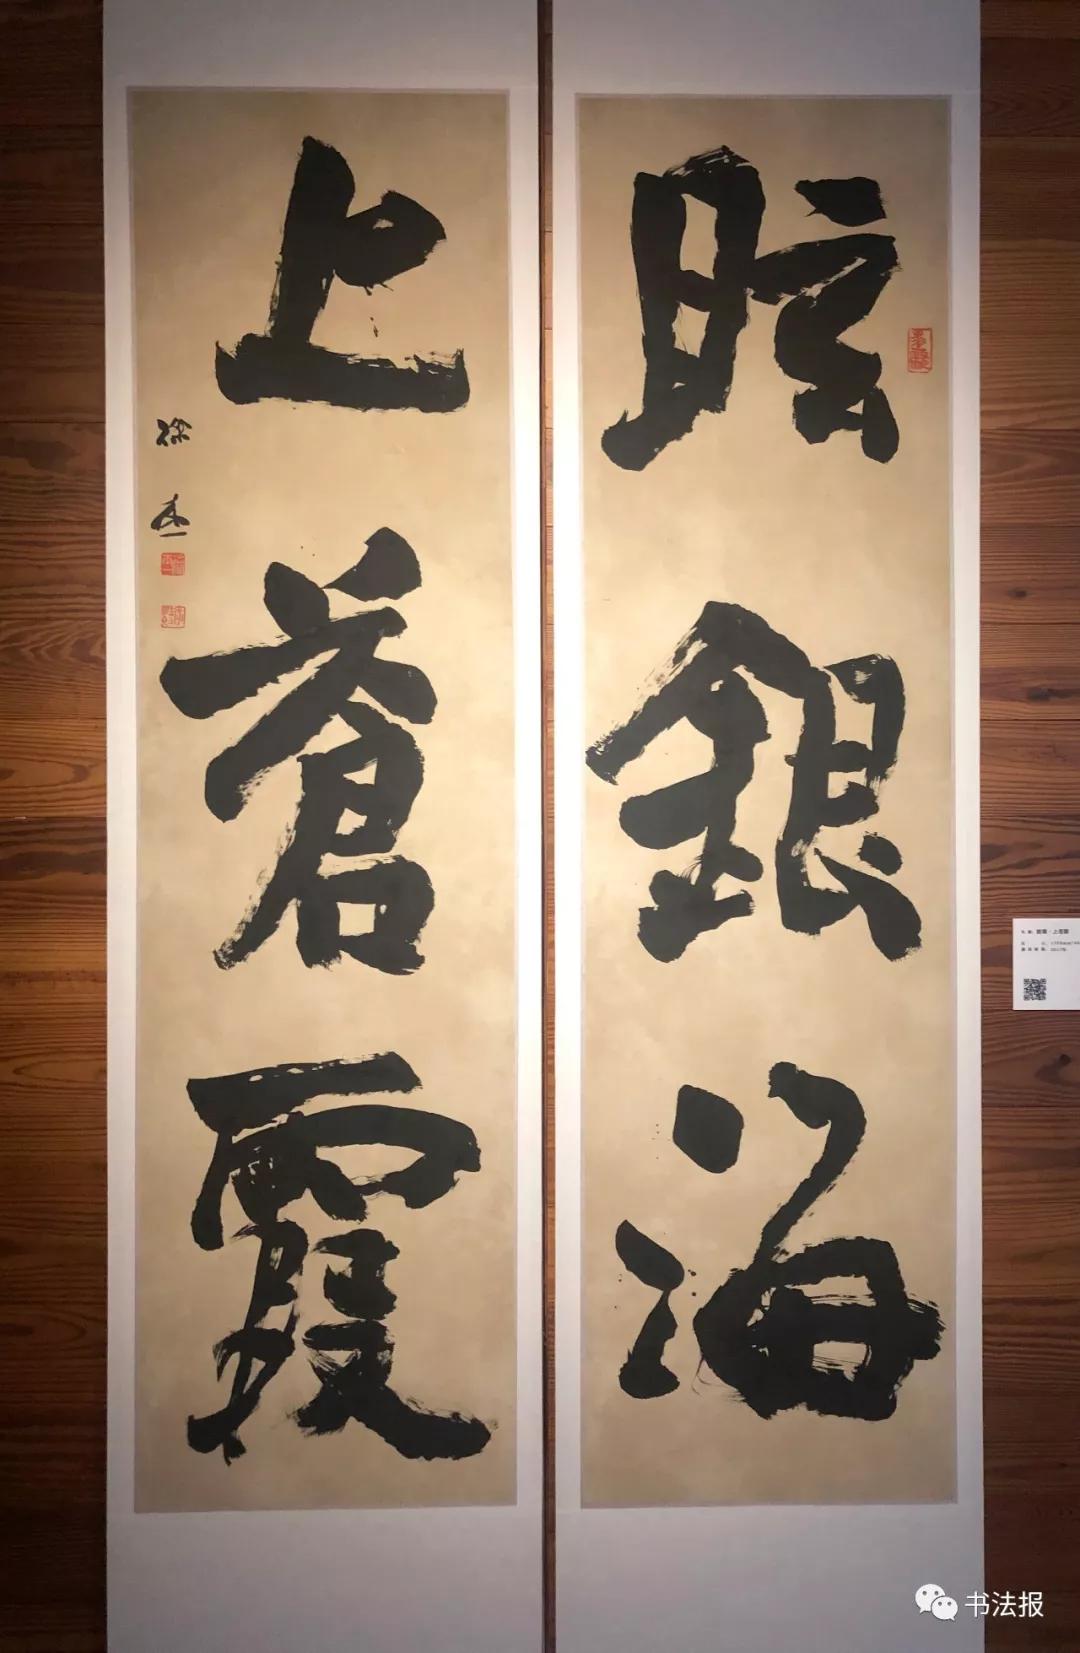 眩銀海
上蒼霞
徐本一
书法报